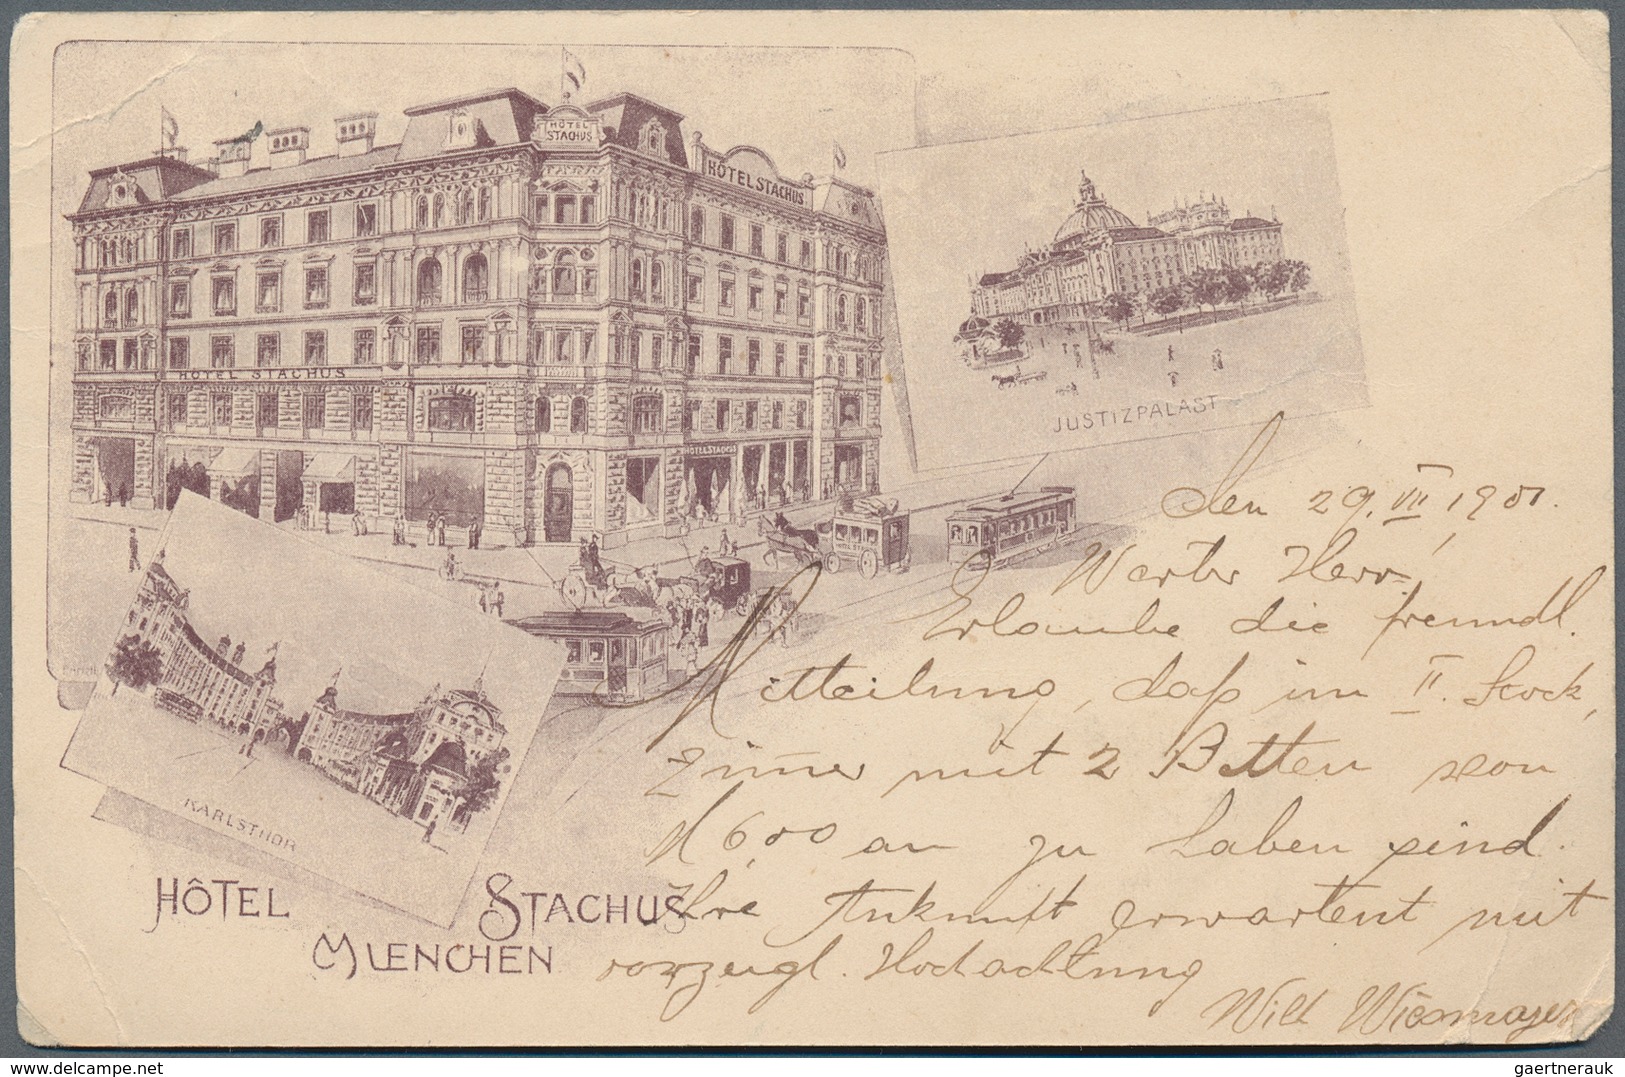 HÔTEL
STACHUS
HÔTEL STACHUS
HOTEL STACHUS
HOTEL STACHUS
JUSTIZPALAST
KARLSTHOR
HÔTEL STACHUS
MUENCHEN
den 29. VII 1901.
Werter Herr,
Erlaube die freundl.
Mitteilung, daß im II. Stock,
Zim̅er mit 2 Betten von
M 6,00 an zu haben sind.
Ihre Ankunft erwartent mit
vorzeugl. Hochachtung
Wilh Wiesmayer
delcampe.net
gaertnerauk